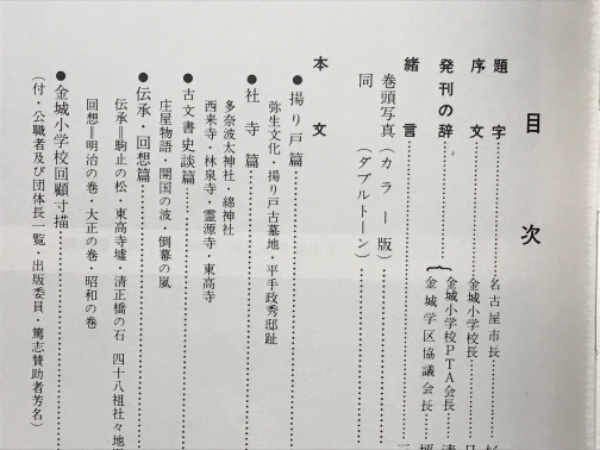 目次
題字………名古屋市長
序文………金城小学校長
発刊の辞………{金城小学校PTA会長
金城学区協議会長
緒言………
巻頭写真（カラー版）………
同（ダブルトーン）………
本文
●揚り戸篇………
弥生文化・揚り戸古墓地・平手政秀邸趾
●社寺篇………
多奈波太神社・綿神社
西来寺・林泉寺・霊源寺・東高寺
●古文書史談篇………
庄屋物語・開国の波・倒幕の嵐
●伝承・回想篇………
伝承＝駒止の松・東高寺墟・清正橋の石　四十八祖社々地
回想＝明治の巻・大正の巻・昭和の巻
●金城小学校回顧寸描………
（付・公職者及び団体長一覧・出版委員・篤志賛助者芳名）